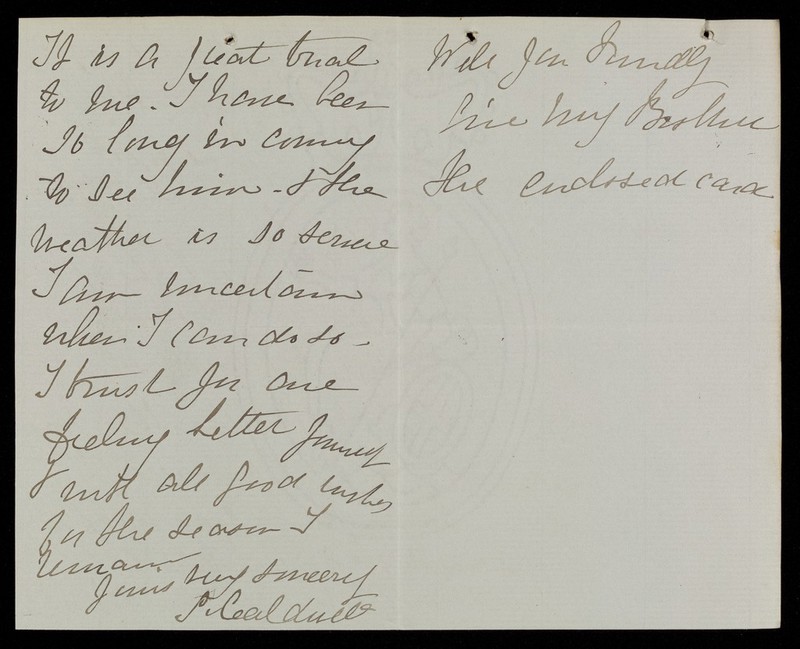 It is a great trial
to me. I have been
so long in coming
to see him - & the
weather is so severe
I am uncertain
when I can do so -
I trust you are
feeling better yourself
& with all good wishes
for the season I
remain
yours very sincerely
Caldwell
Will you kindly
give my Brother
the enclosed card